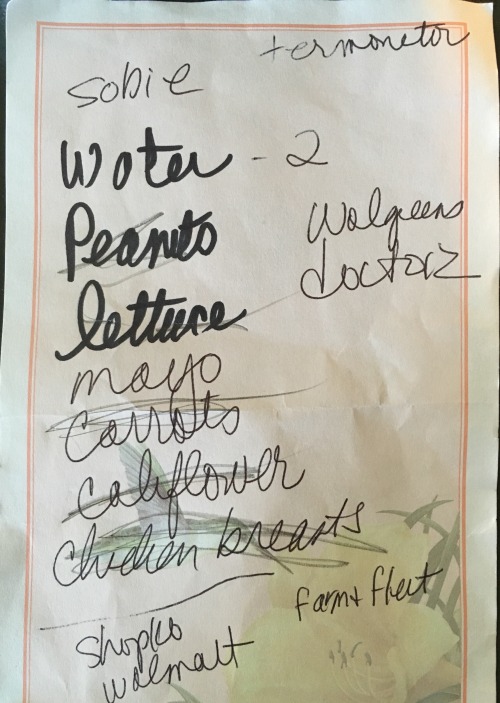 termonetor
sobie
Water - 2
Peanuts
Walgreens
doctorz
lettuce
mayo
Carrots
Califlower
Chicken breasts
farm + fleet
Shopko
walmart